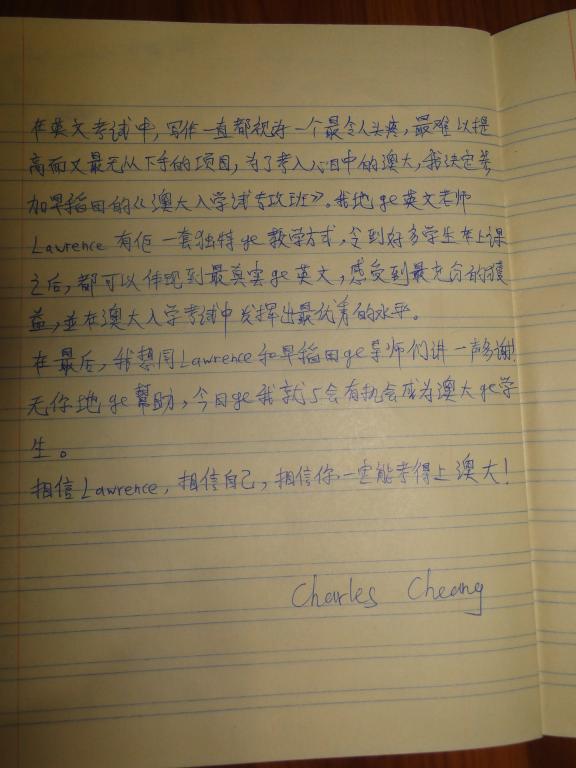 在英文考试中,写作一直都视为一个最令人头疼,最难以提
高而又最无从下手的项目,为了考入心目中的澳大,我决定参
加早稻田的《澳大入学试专攻班》。我地ge英文老师
Lawrence 有佢一套独特ge教学方式,令到好多学生在上课
之后,都可以体现到最真实ge英文,感受到最充分的獲
益,並在澳大入学考试中发挥出最优秀的水平。
在最后,我想同Lawrence和早稻田ge导师们讲一声多谢!
无你地ge幫助,今日ge我就5会有机会成为澳大ge学
生。
相信Lawrence,相信自己,相信你一定能考得上澳大!
Charles Cheang